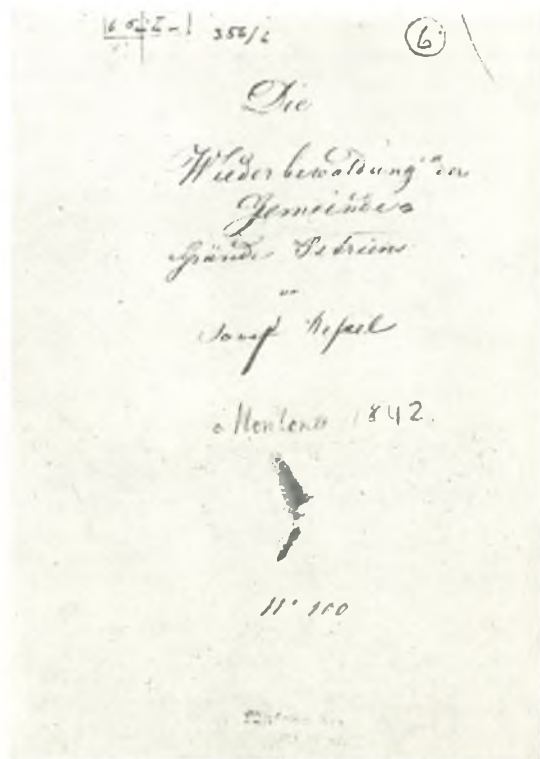 356/2
6
Die
Wiederbewaldung der
Gemeinde
Gründe Istriens
von
Josef Ressel
Montona 1842.
N° 100